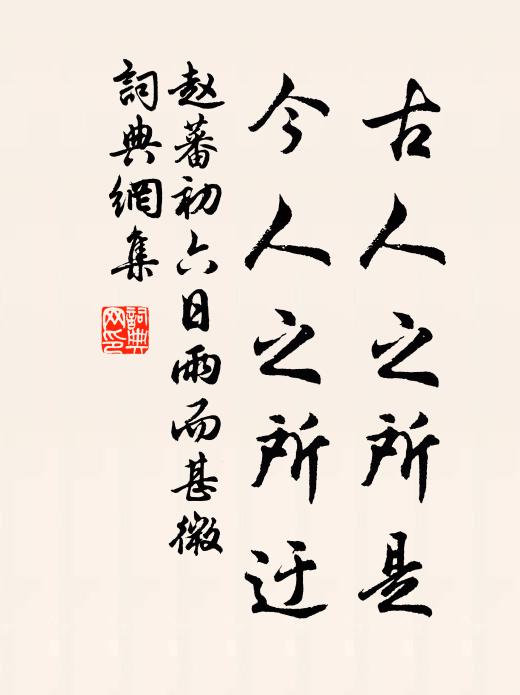 古人之所是
今人之所迂
赵蕃初六日雨而甚微
詞典網集
詞典
网印